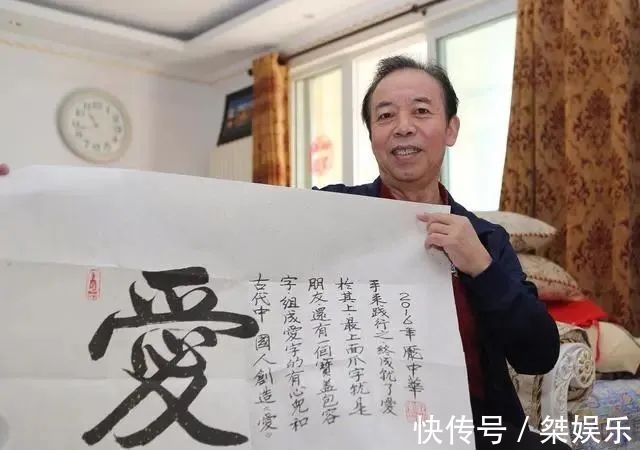 愛
古代中國人創造《愛》
字,組成愛字的有心兒和
朋友,還有一個寶蓋包容
扵其上,最上面爪字就是
手来踐行之,終成就了愛
龐中華
快传号 / 桀娱乐